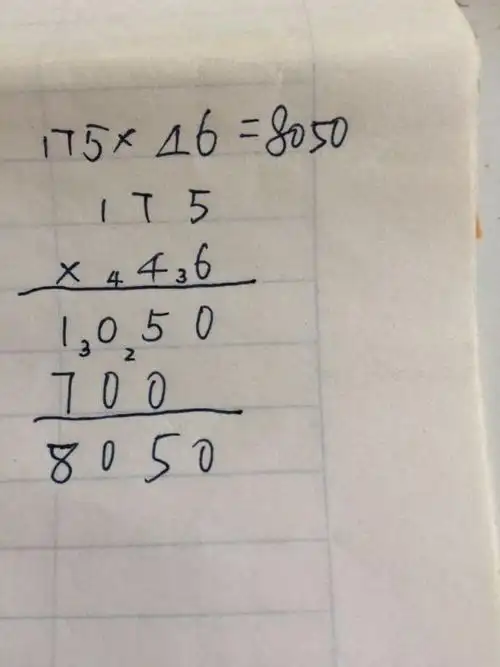 175 × 46 = 8050
1 7 5
× 4 4 3 6
1 3 0 2 5 0
7 0 0
8 0 5 0